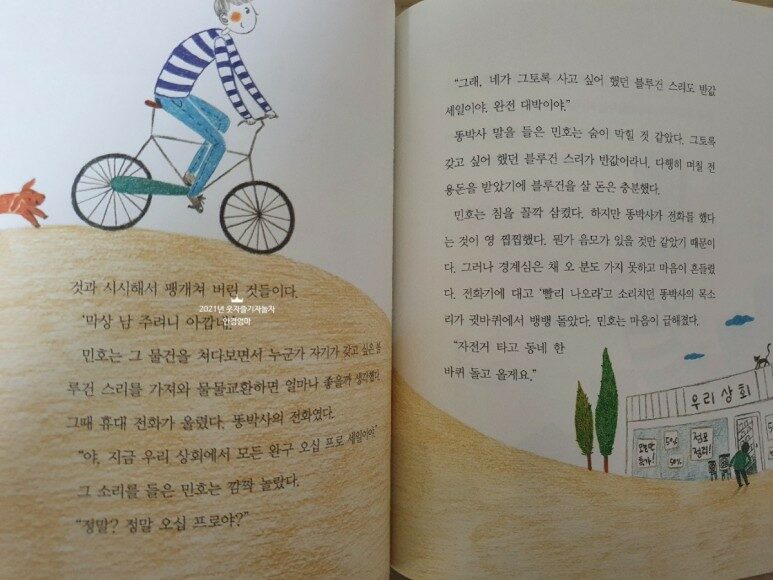 것과 시시해서 팽개쳐 버린 것들이다.
'막상 남 주려니 아깝네.'
민호는 그 물건을 쳐다보면서 누군가 자기가 갖고 싶은 블
루건 스리를 가져와 물물교환하면 얼마나 좋을까 생각했다.
그때 휴대 전화가 울렸다. 똥박사의 전화였다.
"야, 지금 우리 상회에서 모든 완구 오십 프로 세일이야."
그 소리를 들은 민호는 깜짝 놀랐다.
"정말? 정말 오십 프로야?"
2021년 웃자즐기자놀자
안경엄마
"그래. 네가 그토록 사고 싶어 했던 블루건 스리도 반값
세일이야. 완전 대박이야."
똥박사 말을 들은 민호는 숨이 막힐 것 같았다. 그토록
갖고 싶어 했던 블루건 스리가 반값이라니. 다행히 며칠 전
용돈을 받았기에 블루건을 살 돈은 충분했다.
민호는 침을 꼴깍 삼켰다. 하지만 똥박사가 전화를 했다
는 것이 영 찝찝했다. 뭔가 음모가 있을 것만 같았기 때문이
다. 그러나 경계심은 채 오 분도 가지 못하고 마음이 흔들렸
다. 전화기에 대고 '빨리 나오라'고 소리치던 똥박사의 목소
리가 귓바퀴에서 뱅뱅 돌았다. 민호는 마음이 급해졌다.
"자전거 타고 동네 한
바퀴 돌고 올게요."
우리상회
오늘만
특가!
50%
점포
정리!
50%